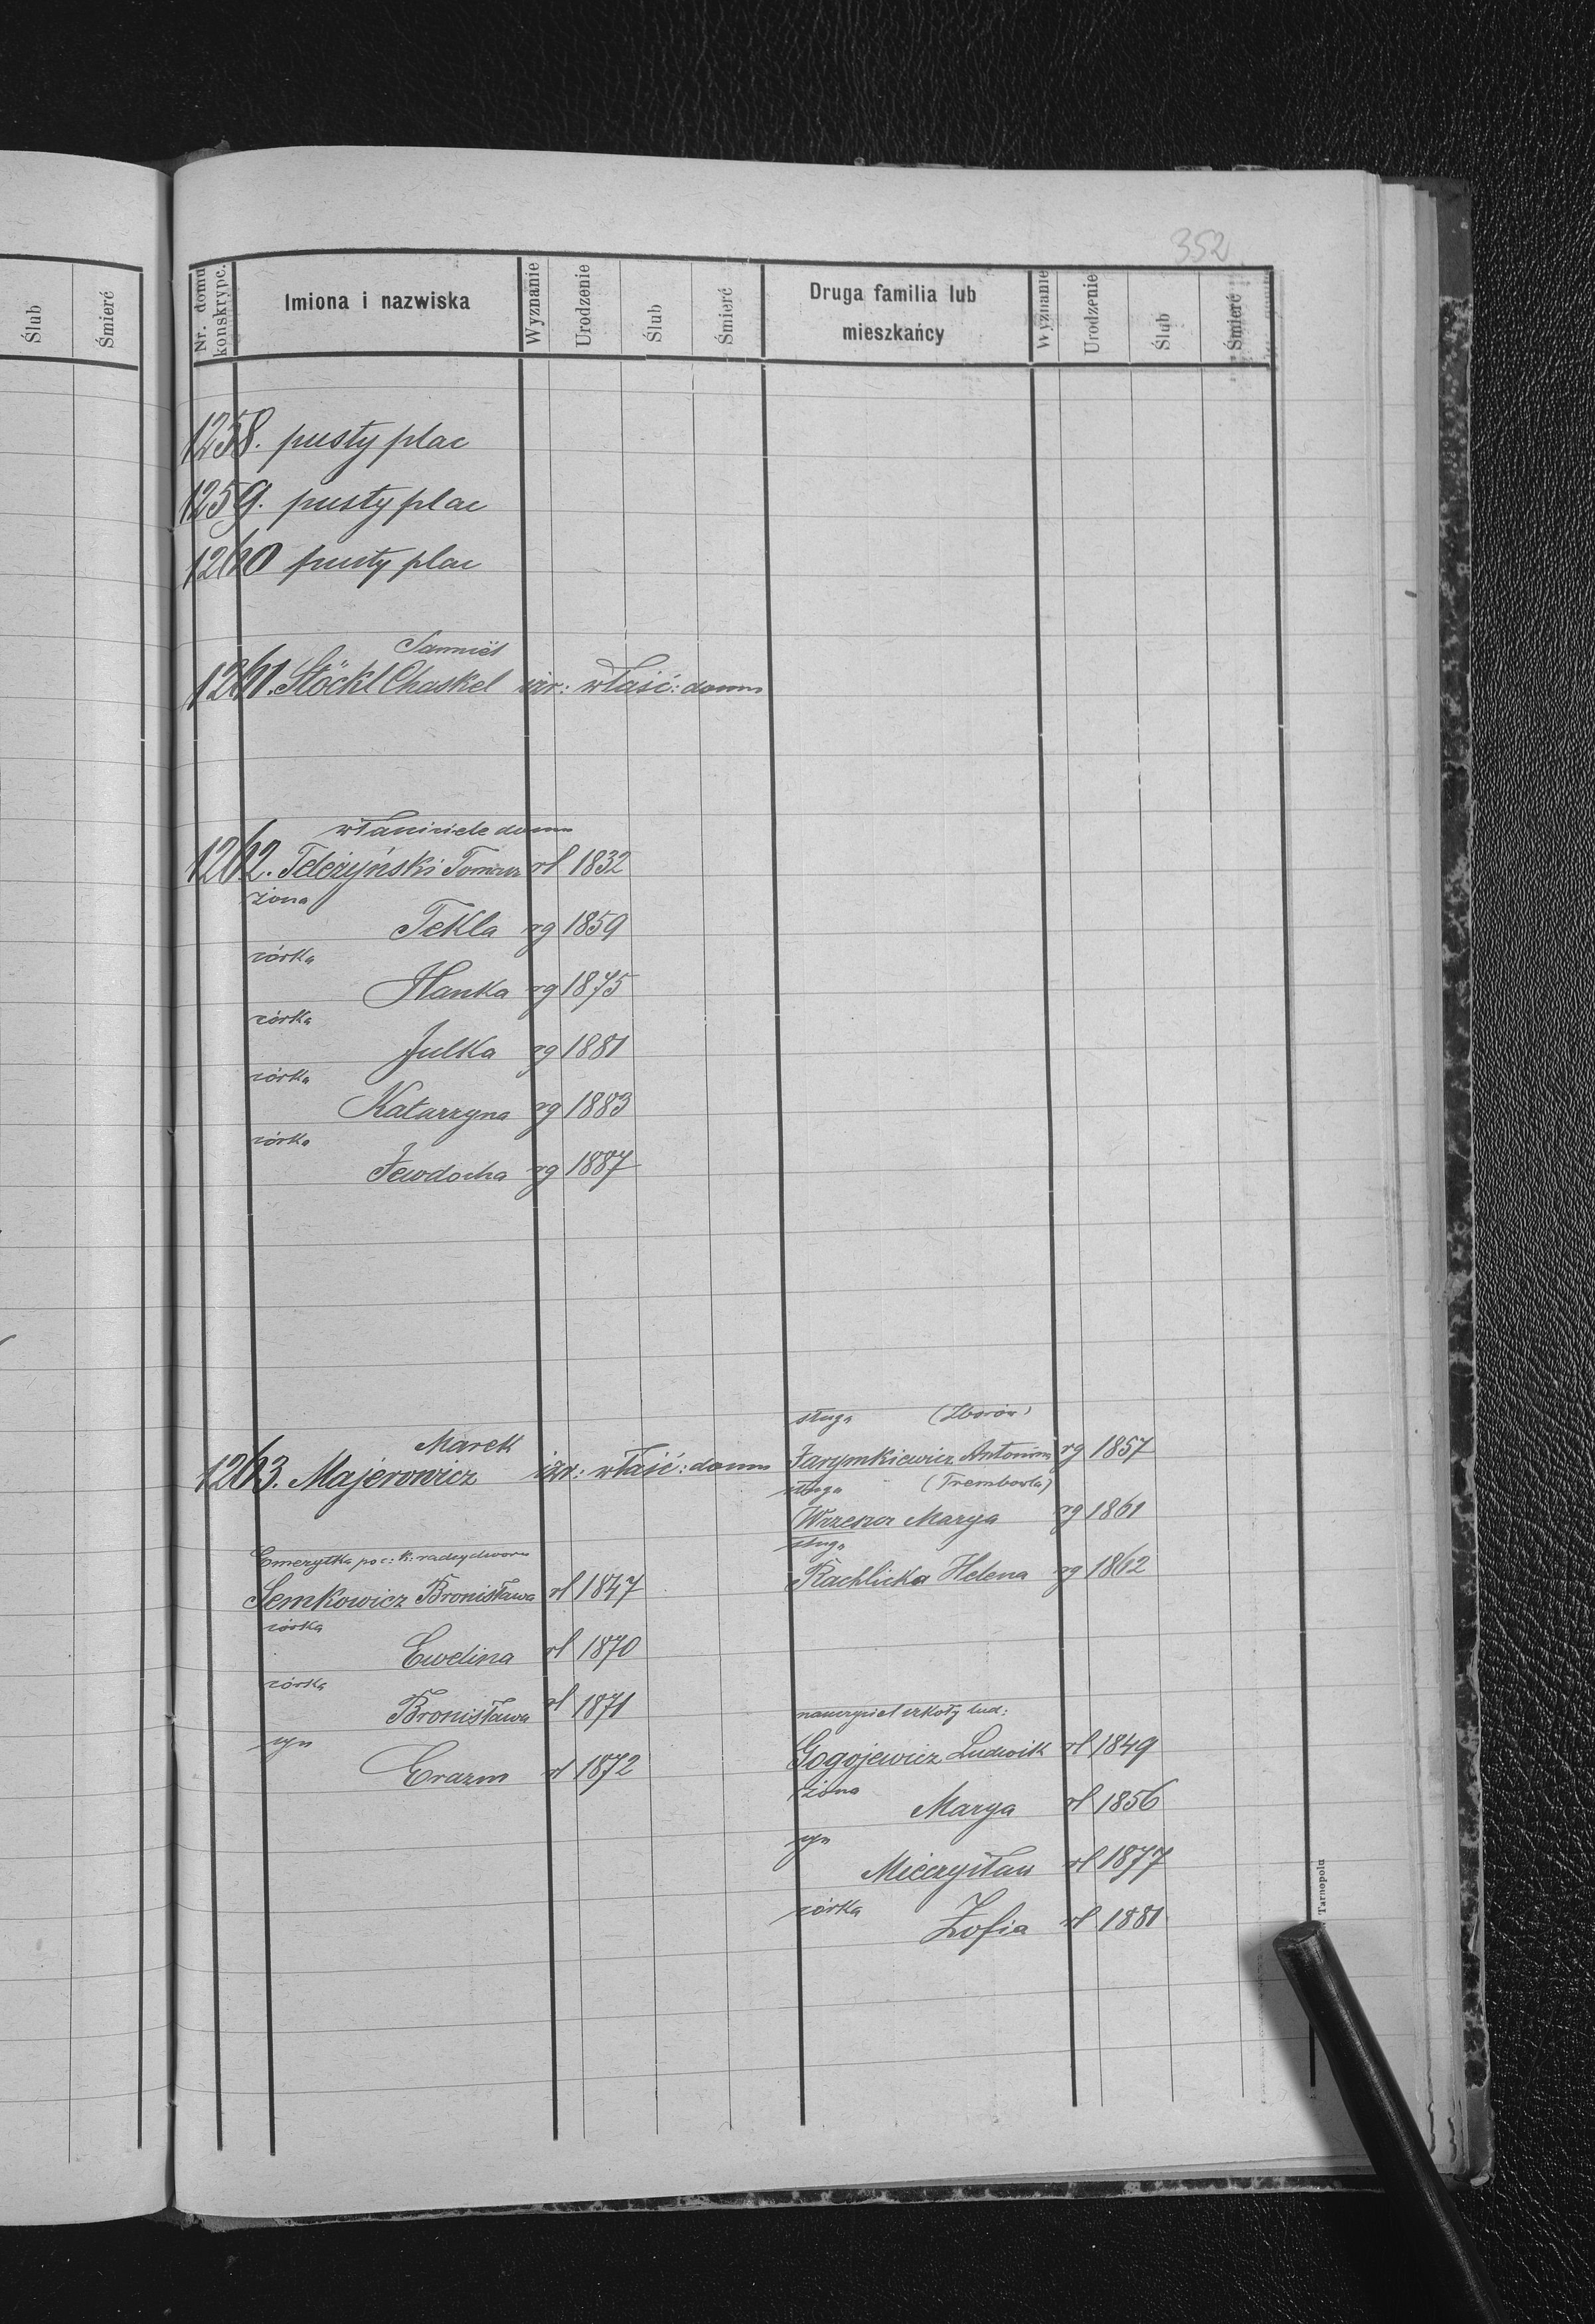 352
Ślub
Śmierć
Nr. domu konskrypc.
Imiona i nazwiska
Wyznanie
Urodzenie
Ślub
Śmierć
Druga familia lub mieszkańcy
Wyznanie
Urodzenie
Ślub
Śmierć
1258. pusty plac
1259. pusty plac
1260 pusty plac
Samuel
1261. Stöckl Chaskel izr: właść: domu
właściciele domu
1262. Teleżyński Tomasz rl 1832
żona
Tekla rg 1859
córka
Hanka rg 1875
córka
Julka rg 1881
córka
Katarzyna rg 1883
córka
Jewdocha rg 1887
Marek
1263. Majerowicz izr: właść: domu
Emerytka po c: k: radcy dworu
Semkowicz Bronisława rl 1847
córka
Ewelina rl 1870
córka
Bronisława rl 1871
syn
Erazm rl 1872
sługa (Zborów)
Jarymkiewicz Antonina rg 1857
sługa (Trembowla)
Marya rg 1861
sługa
Rachlicka Helena rg 1862
nauczyciel szkoły lud:
Gogojewicz Ludwik rl 1849
żona
Marya rl 1856
syn
Mieczysław rl 1877
córka
Zofia rl 1881
Tarnopolu